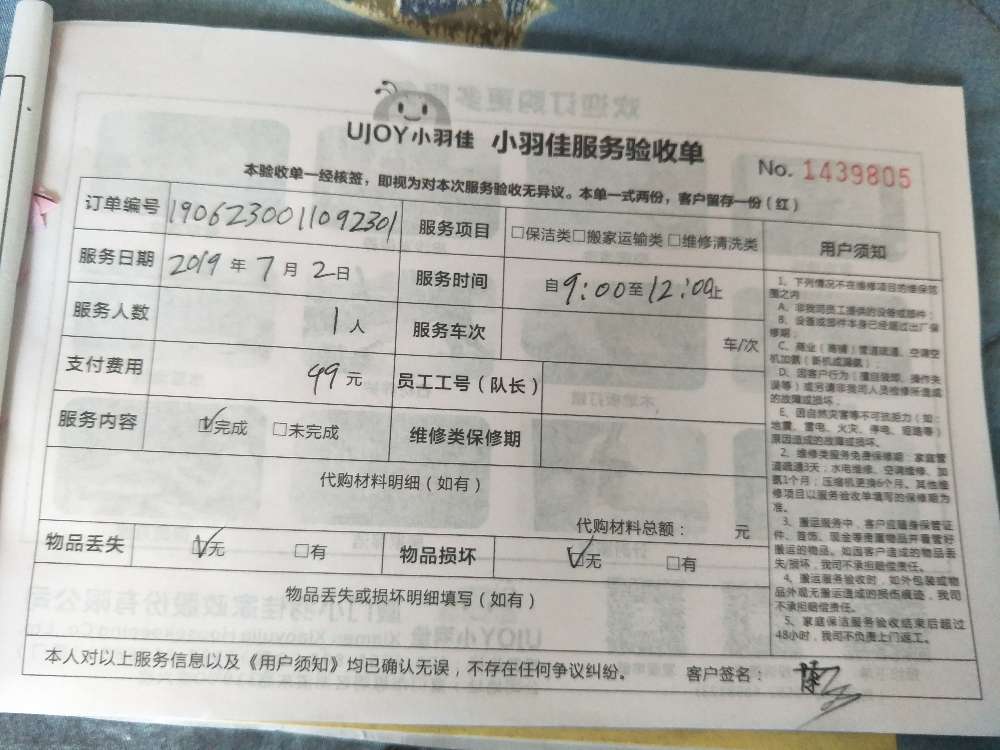 UJOY小羽佳 小羽佳服务验收单 No. 1439805
本验收单一经核签，即视为对本次服务验收无异议。本单一式两份，客户留存一份（红）
订单编号 1906230011092301 服务项目 □保洁类□搬家运输类□维修清洗类
服务日期 2019年7月2日 服务时间 自9:00至12:00止
服务人数 1人 服务车次 车/次
支付费用 49元 员工工号（队长）
服务内容 ☑完成 □未完成 维修类保修期
代购材料明细（如有）
代购材料总额： 元
物品丢失 ☑无 □有 物品损坏 ☑无 □有
物品丢失或损坏明细填写（如有）
本人对以上服务信息以及《用户须知》均已确认无误，不存在任何争议纠纷。 客户签名：
用户须知
1、下列情况不在维修项目的维保范
围之内
A、非我司员工提供的设备或部件；
B、设备或部件本身已经超过出厂保
修期；
C、商业（商铺）管道疏通、空调空
机加氨（新机或漏氨）；
D、因客户行为（擅自装卸、操作失
误等）或另请非我司人员检修所造成
的故障或损坏．
E、因自然灾害等不可抗拒力（如：
地震、雷电、火灾、停电、短路等）
原因造成的故障或损坏．
2、维修类服务免费保修期：家庭管
道疏通3天；水电维修、空调维修、加
氨1个月；压缩机更换6个月。其他维
修项目以服务验收单填写的保修期为
准。
3、搬运服务中，客户应随身保管证
件、首饰、现金等贵重物品并看管好
搬运的物品。如因客户造成的物品丢
失/损坏，我司不承担赔偿责任。
4、搬运服务验收时，如外包装或物
品外观无搬运造成的损伤痕迹，我司
不承担赔偿责任。
5、家庭保洁服务验收结束后超过
48小时，我司不负责上门返工。